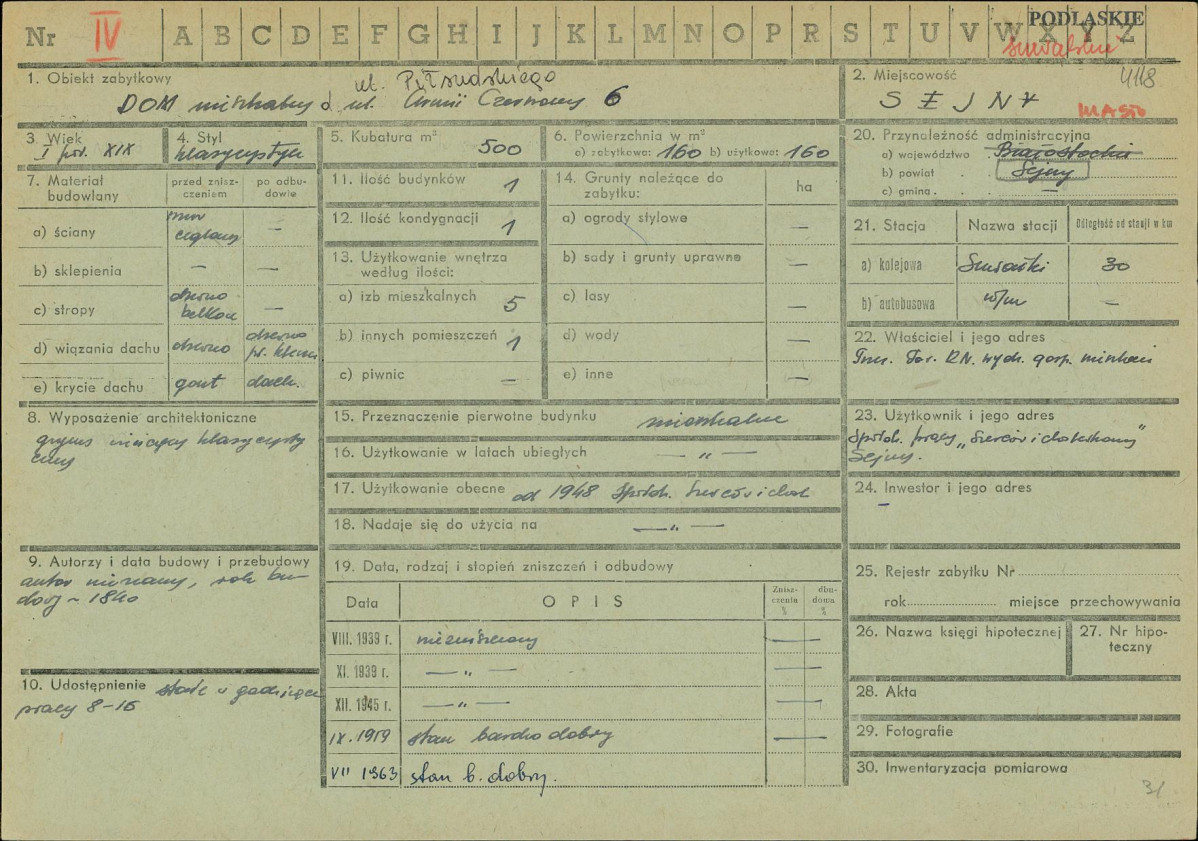 PODLASKIE
Nr IV A B C D E F G H I J K L M N O P R S T U V W X Y Z
suwalskie
4118
1. Obiekt zabytkowy ul. Piłsudskiego
DOM mieszkalny ul. Armii Czerwonej 6
2. Miejscowość
SEJNY
MIASTO
3. Wiek
I poł. XIX
4. Styl
klasycystycz
5. Kubatura m³ 500
6. Powierzchnia w m²
a) zabytkowa: 160 b) użytkowa: 160
20. Przynależność administracyjna
a) województwo Białostockie
b) powiat Sejny
c) gmina —
7. Materiał budowlany
przed zniszczeniem
po odbudowie
a) ściany mur ceglany —
b) sklepienia — —
c) stropy drewno belkow —
d) wiązania dachu drewno drewno
e) krycie dachu gont dach.
11. Ilość budynków 1
12. Ilość kondygnacji 1
13. Użytkowanie wnętrza
według ilości:
a) izb mieszkalnych 5
b) innych pomieszczeń 1
c) piwnic —
14. Grunty należące do
zabytku:
ha
a) ogrody stylowe —
b) sady i grunty uprawne —
c) lasy —
d) wody —
e) inne —
21. Stacja Nazwa stacji Odległość od stacji w km
a) kolejowa Suwałki 30
b) autobusowa w/m —
22. Właściciel i jego adres
RN. wydz. gosp. mieszkan
8. Wyposażenie architektoniczne
gzyms wieńczący klasycysty
czny
15. Przeznaczenie pierwotne budynku mieszkalne
16. Użytkowanie w latach ubiegłych — „ —
17. Użytkowanie obecne od 1948 Spółdz. Szewców i chol
18. Nadaje się do użycia na — „ —
23. Użytkownik i jego adres
Spółdz. pracy „Szewców i cholewkarzy"
Sejny.
24. Inwestor i jego adres
—
9. Autorzy i data budowy i przebudowy
autor nieznany, rok bu-
dowy ~ 1840
19. Data, rodzaj i stopień zniszczeń i odbudowy
Data OPIS Zniszczenia % dbudowa %
VIII. 1939 r. niezniszczony —
XI. 1939 r. — „ — —
XII. 1945 r. — „ — —
IX. 1959 stan bardzo dobry —
VII 1963 stan b. dobry.
10. Udostępnienie stałe w godzinach
pracy 8-16
25. Rejestr zabytku Nr
rok miejsce przechowywania
26. Nazwa księgi hipotecznej
27. Nr hipo-
teczny
28. Akta
29. Fotografie
30. Inwentaryzacja pomiarowa
31